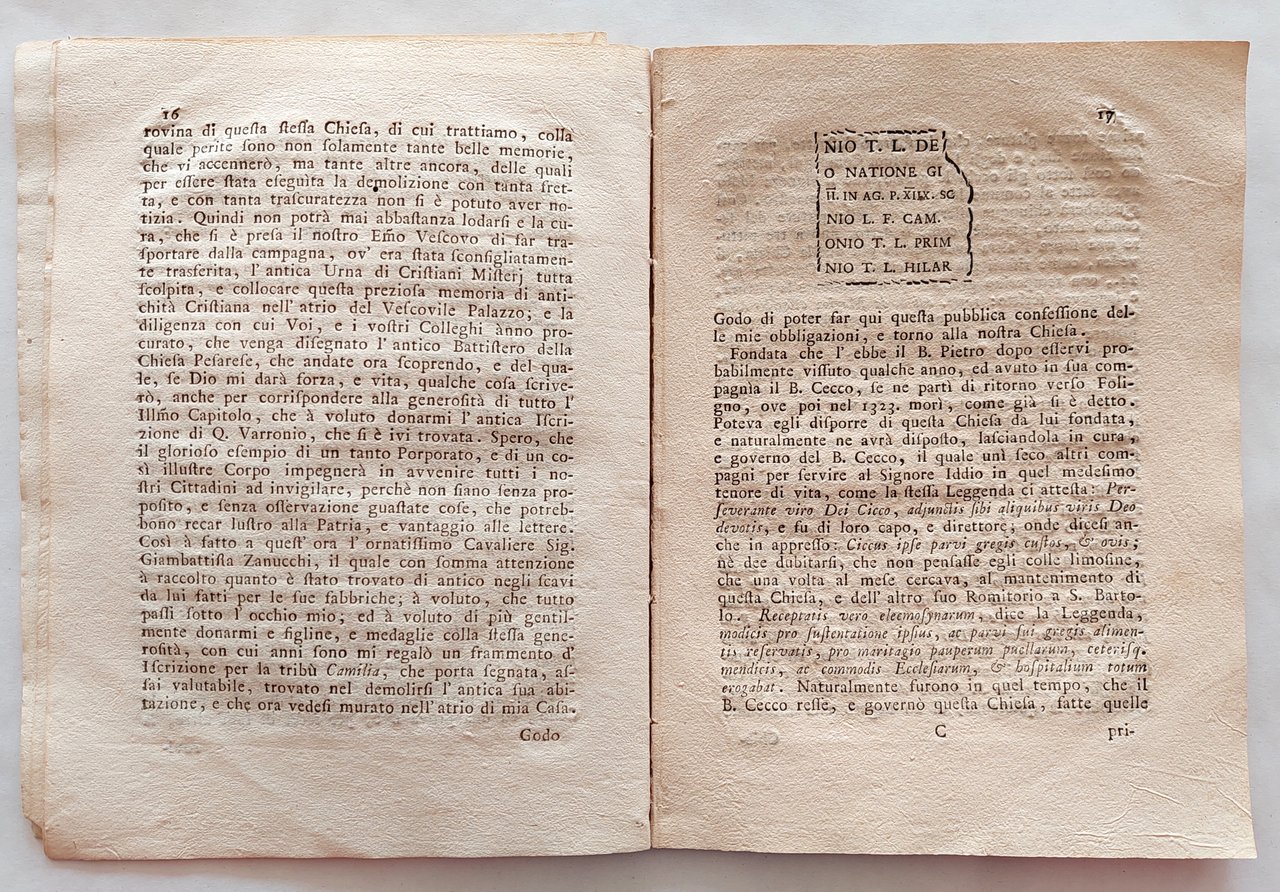 16
rovina di queſta ſteſſa Chieſa, di cui trattiamo, colla
quale perite ſono non ſolamente tante belle memorie,
che vi accennerò, ma tante altre ancora, delle quali
per eſſere ſtata eſeguìta la demolizione con tanta fret-
ta, e con tanta traſcuratezza non ſi è potuto aver no-
tizia. Quindi non potrà mai abbaſtanza lodarſi e la cu-
ra, che ſi è preſa il noſtro Emo Veſcovo di far tra-
ſportare dalla campagna, ov' era ſtata ſconſigliatamen-
te trasferita, l' antica Urna di Criſtiani Miſterj tutta
ſcolpita, e collocare queſta prezioſa memoria di anti-
chità Criſtiana nell' atrio del Veſcovile Palazzo; e la
diligenza con cui Voi, e i voſtri Colleghi ànno pro-
curato, che venga diſegnato l' antico Battiſtero della
Chieſa Peſareſe, che andate ora ſcoprendo, e del qua-
le, ſe Dio mi darà forza, e vita, qualche coſa ſcrive-
rò, anche per corriſpondere alla generoſità di tutto l'
Illmo Capitolo, che à voluto donarmi l' antica Iſcri-
zione di Q. Varronio, che ſi è ivi trovata. Spero, che
il glorioſo eſempio di un tanto Porporato, e di un co-
sì illuſtre Corpo impegnerà in avvenire tutti i no-
ſtri Cittadini ad invigilare, perchè non ſiano ſenza pro-
poſito, e ſenza oſſervazione guaſtate coſe, che potreb-
bono recar luſtro alla Patria, e vantaggio alle lettere.
Così à fatto a queſt' ora l' ornatiſſimo Cavaliere Sig.
Giambattiſta Zanucchi, il quale con ſomma attenzione
à raccolto quanto è ſtato trovato di antico negli ſcavi
da lui fatti per le ſue fabbriche; à voluto, che tutto
paſſi ſotto l' occhio mio; ed à voluto di più gentil-
mente donarmi e figline, e medaglie colla ſteſſa gene-
roſità, con cui anni ſono mi regalò un frammento d'
Iſcrizione per la tribù Camilia, che porta ſegnata, aſ-
ſai valutabile, trovato nel demolirſi l' antica ſua abi-
tazione, e che ora vedeſi murato nell' atrio di mia Caſa.
Godo
17
NIO T. L. DE
O NATIONE GI
II. IN AG. P. XIIX. SC
NIO L. F. CAM.
ONIO T. L. PRIM
NIO T. L. HILAR
Godo di poter far qui queſta pubblica confeſſione del-
le mie obbligazioni, e torno alla noſtra Chieſa.
Fondata che l' ebbe il B. Pietro dopo eſſervi pro-
babilmente viſſuto qualche anno, ed avuto in ſua com-
pagnìa il B. Cecco, ſe ne partì di ritorno verſo Foli-
gno, ove poi nel 1323. morì, come già ſi è detto.
Poteva egli diſporre di queſta Chieſa da lui fondata,
e naturalmente ne avrà diſpoſto, laſciandola in cura,
e governo del B. Cecco, il quale unì ſeco altri com-
pagni per ſervire al Signore Iddio in quel medeſimo
tenore di vita, come la ſteſſa Leggenda ci atteſta: Per-
ſeverante viro Dei Cicco, adjunctis ſibi aliquibus viris Deo
devotis, e fu di loro capo, e direttore, onde diceſi an-
che in appreſſo: Ciccus ipſe parvi gregis cuſtos, & ovis;
nè dee dubitarſi, che non penſaſſe egli colle limoſine,
che una volta al meſe cercava, al mantenimento di
queſta Chieſa, e dell' altro ſuo Romitorio a S. Barto-
lo. Receptatis vero eleemoſynarum, dice la Leggenda,
modicis pro ſuſtentatione ipſius, ac parvi ſui gregis alimen-
tis reſervatis, pro maritagio pauperum puellarum, ceteriſq.
mendicis, ac commodis Eccleſiarum, & hoſpitalium totum
erogabat. Naturalmente furono in quel tempo, che il
B. Cecco reſſe, e governò queſta Chieſa, fatte quelle
C
pri-